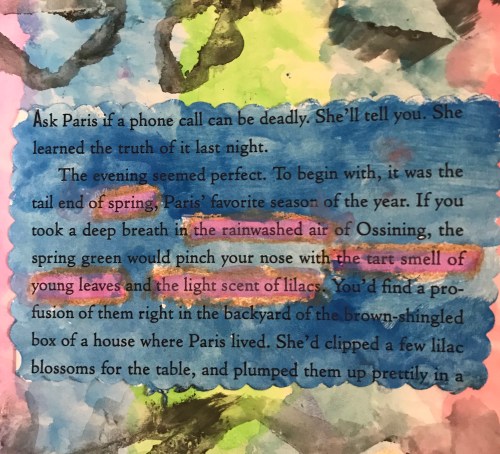 Ask Paris if a phone call can be deadly. She'll tell you. She
learned the truth of it last night.
The evening seemed perfect. To begin with, it was the
tail end of spring, Paris' favorite season of the year. If you
took a deep breath in the rainwashed air of Ossining, the
spring green would pinch your nose with the tart smell of
young leaves and the light scent of lilacs. You'd find a pro-
fusion of them right in the backyard of the brown-shingled
box of a house where Paris lived. She'd clipped a few lilac
blossoms for the table, and plumped them up prettily in a